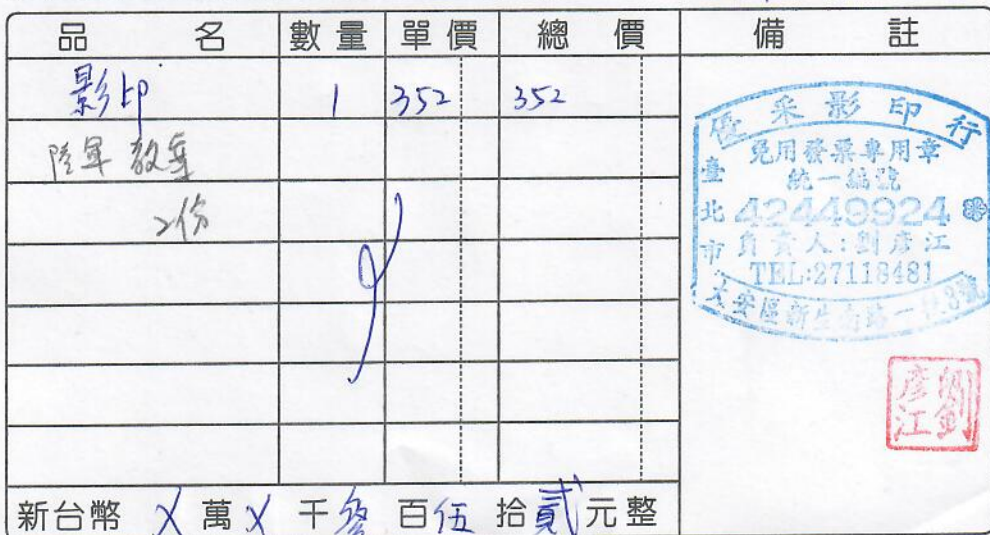 品 名 數量 單價 總 價 備 註
影印 1 352 352
陸軍 教案
2份
優采影印行
免用發票專用章
統一編號
臺北市
42449924
負責人:劉彥江
TEL:27118481
大安區新生南路一段3號
劉彥江
新台幣 X 萬 X 千 參 百 伍 拾 貳 元整